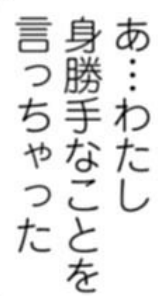 あ…わたし
身勝手なことを
言っちゃった